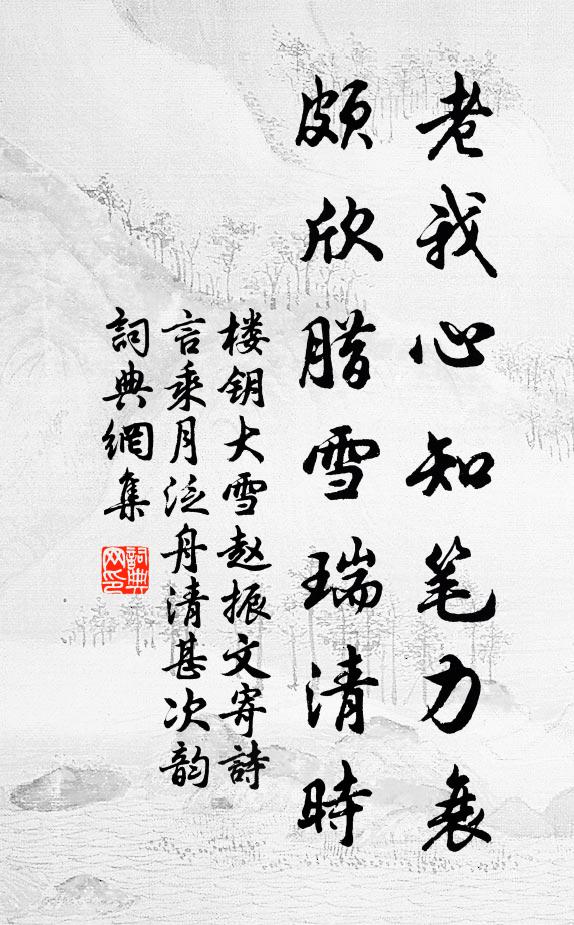 老我心知笔力衰
颇欣腊雪瑞清時
楼钥大雪赵振文寄詩
言乘月泛舟清甚次韵
詞典網集
詞典
网印